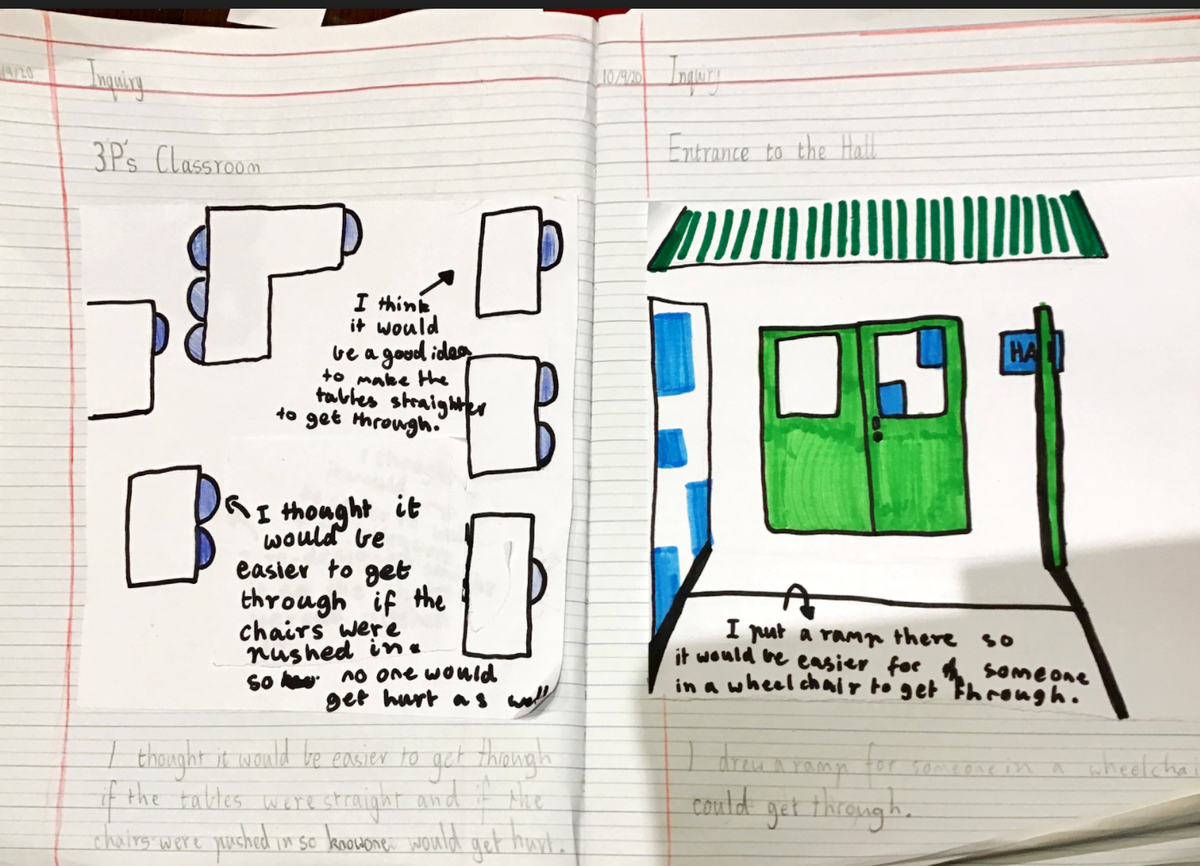 Inquiry
3P's Classroom
I think
it would
be a good idea
to make the
tables straighter
to get through.
I thought it
would be
easier to get
through if the
chairs were
pushed in
so no one would
get hurt as well
I thought it would be easier to get through
if the tables were straight and if the
chairs were pushed in so knowone would get hurt.
10/9/20
Inquiry
Entrance to the Hall
HA
I put a ramp there so
it would be easier for someone
in a wheelchair to get through.
I drew a ramp for someone in a wheelchai
could get through.